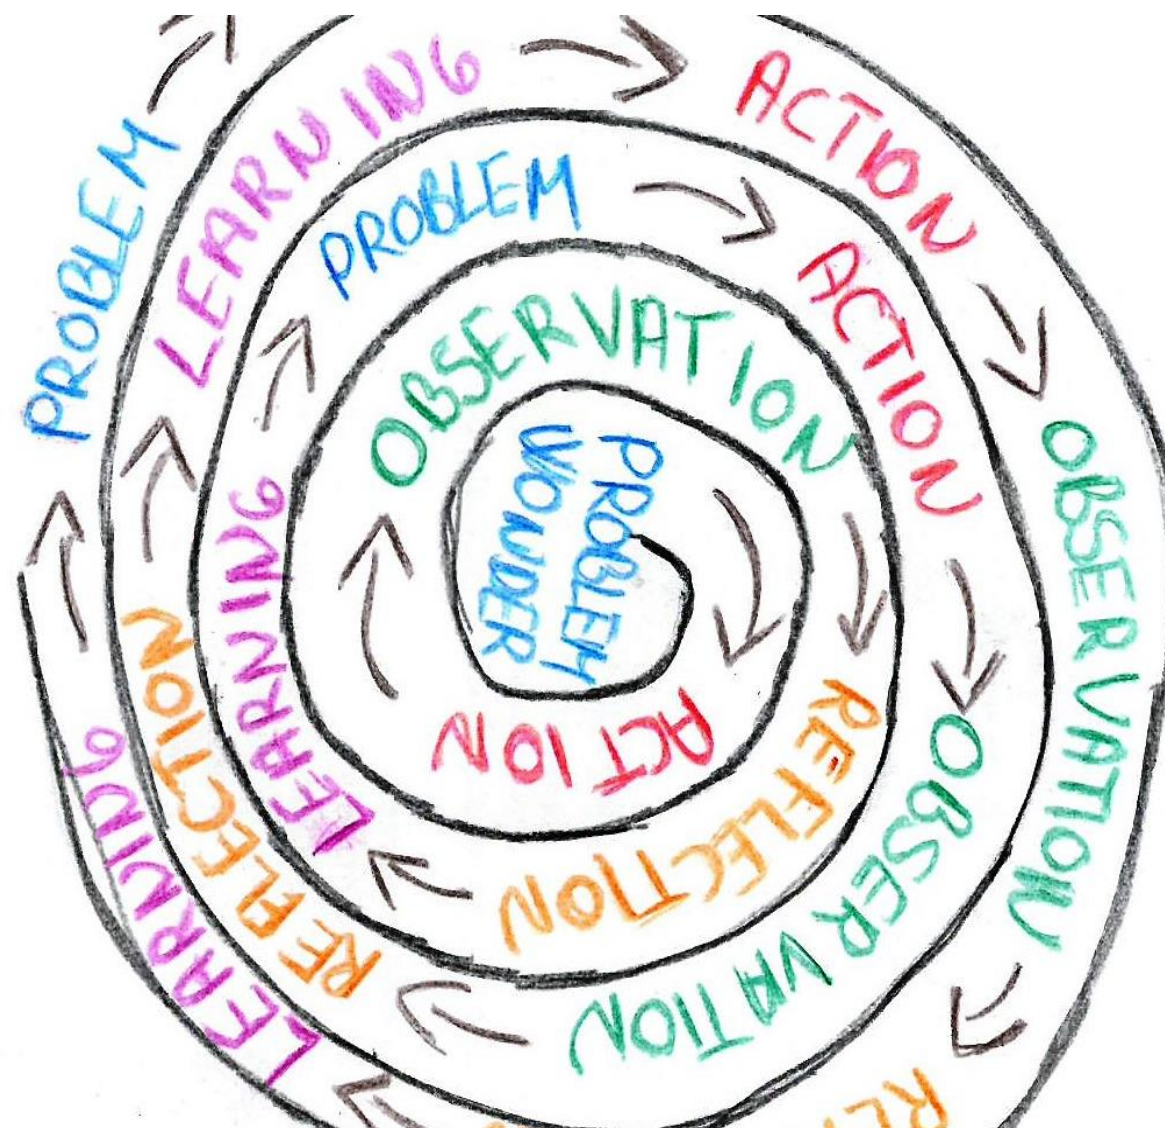 PROBLEM
WONDER
ACTION
OBSERVATION
REFLECTION
LEARNING
PROBLEM
ACTION
OBSERVATION
REFLECTION
LEARNING
ACTION
OBSERVATION
LEARNING
PROBLEM